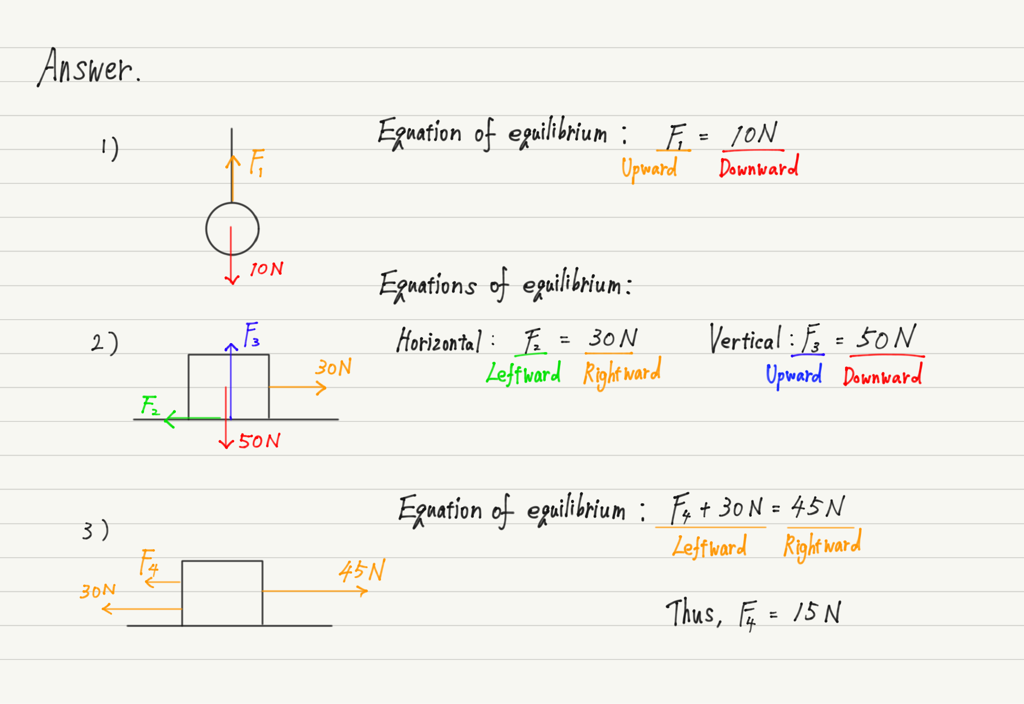 Answer.
1)
F₁
10N
Equation of equilibrium : F₁ = 10N
Upward Downward
Equations of equilibrium:
2)
F₃
30N
F₂
50N
Horizontal : F₂ = 30N Vertical : F₃ = 50N
Leftward Rightward Upward Downward
3)
F₄
30N
45N
Equation of equilibrium : F₄ + 30N = 45N
Leftward Rightward
Thus, F₄ = 15N